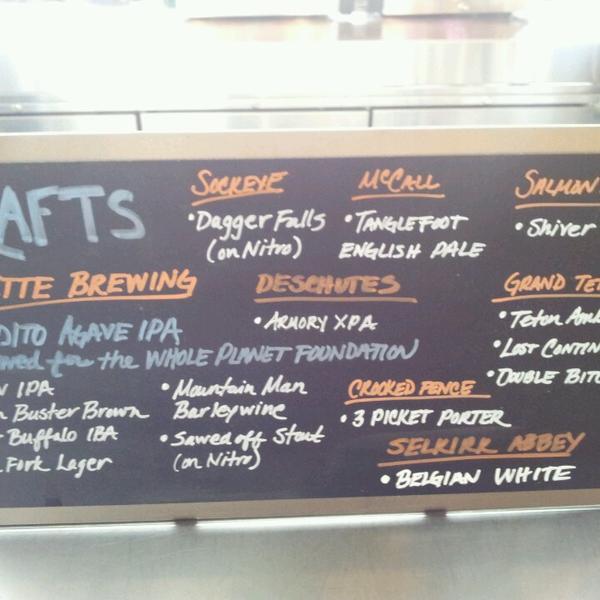 AFTS
SOCKEYE
• Dagger Falls
(on Nitro)
McCALL
• TANGLEFOOT
ENGLISH PALE
SALMON
• Shiver
TTE BREWING
DITO AGAVE IPA
wed for the WHOLE PLANET FOUNDATION
IPA
Buster Brown
Buffalo IBA
Fork Lager
• Mountain Man
Barleywine
• Sawed off Stout
(on Nitro)
DESCHUTES
• ARMORY XPA
CROOKED FENCE
• 3 PICKET PORTER
SELKIRK ABBEY
• BELGIAN WHITE
GRAND TET
• Teton Amb
• LOST CONTIN
• DOUBLE BITC